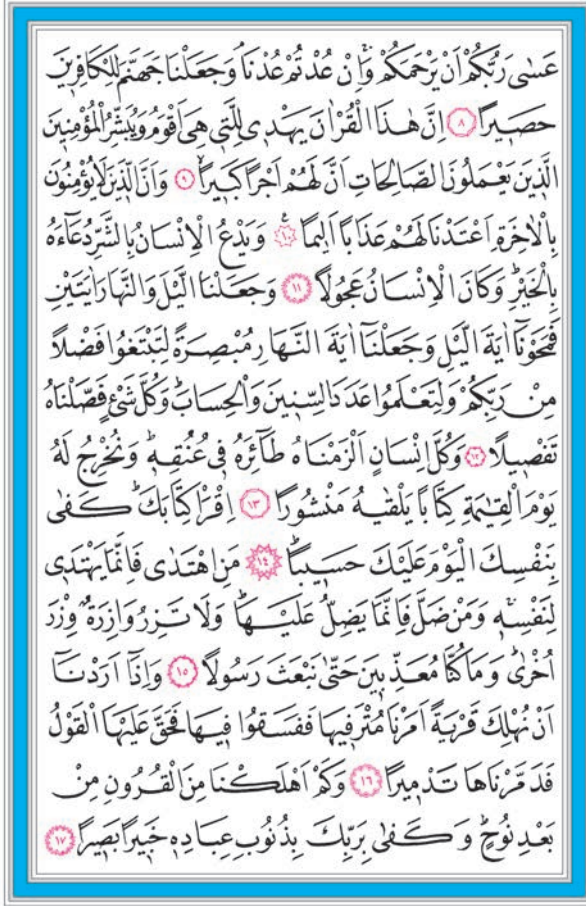 عَسٰى رَبُّكُمْ اَنْ يَرْحَمَكُمْۚ وَاِنْ عُدْتُمْ عُدْنَاۢ وَجَعَلْنَا جَهَنَّمَ لِلْكَافِرٖينَ
حَصٖيراً ﴿٨﴾ اِنَّ هٰذَا الْقُرْاٰنَ يَهْدٖى لِلَّتٖى هِىَ اَقْوَمُ وَيُبَشِّرُ الْمُؤْمِنٖينَ
الَّذٖينَ يَعْمَلُونَ الصَّالِحَاتِ اَنَّ لَهُمْ اَجْراً كَبٖيراًۙ ﴿٩﴾ وَاَنَّ الَّذٖينَ لَا يُؤْمِنُونَ
بِالْاٰخِرَةِ اَعْتَدْنَا لَهُمْ عَذَاباً اَلٖيماً۟ ﴿١٠﴾ وَيَدْعُ الْاِنْسَانُ بِالشَّرِّ دُعَٓاءَهُ
بِالْخَيْرِؕ وَكَانَ الْاِنْسَانُ عَجُولاً ﴿١١﴾ وَجَعَلْنَا الَّيْلَ وَالنَّهَارَ اٰيَتَيْنِ
فَمَحَوْنَٓا اٰيَةَ الَّيْلِ وَجَعَلْنَٓا اٰيَةَ النَّهَارِ مُبْصِرَةً لِتَبْتَغُوا فَضْلاً
مِنْ رَبِّكُمْ وَلِتَعْلَمُوا عَدَدَ السِّنٖينَ وَالْحِسَابَؕ وَكُلَّ شَىْءٍ فَصَّلْنَاهُ
تَفْصٖيلاً ﴿١٢﴾ وَكُلَّ اِنْسَانٍ اَلْزَمْنَاهُ طَٓائِرَهُ فٖى عُنُقِهٖؕ وَنُخْرِجُ لَهُ
يَوْمَ الْقِيٰمَةِ كِتَاباً يَلْقٰيهُ مَنْشُوراً ﴿١٣﴾ اِقْرَاْ كِتَابَكَؕ كَفٰى
بِنَفْسِكَ الْيَوْمَ عَلَيْكَ حَسٖيباًؕ ﴿١٤﴾ مَنِ اهْتَدٰى فَاِنَّمَا يَهْتَدٖى
لِنَفْسِهٖۚ وَمَنْ ضَلَّ فَاِنَّمَا يَضِلُّ عَلَيْهَاؕ وَلَا تَزِرُ وَازِرَةٌ وِزْرَ
اُخْرٰىؕ وَمَا كُنَّا مُعَذِّبٖينَ حَتّٰى نَبْعَثَ رَسُولاً ﴿١٥﴾ وَاِذَٓا اَرَدْنَٓا
اَنْ نُهْلِكَ قَرْيَةً اَمَرْنَا مُتْرَفٖيهَا فَفَسَقُوا فٖيهَا فَحَقَّ عَلَيْهَا الْقَوْلُ
فَدَمَّرْنَاهَا تَدْمٖيراً ﴿١٦﴾ وَكَمْ اَهْلَكْنَا مِنَ الْقُرُونِ مِنْ
بَعْدِ نُوحٍؕ وَكَفٰى بِرَبِّكَ بِذُنُوبِ عِبَادِهٖ خَبٖيراً بَصٖيراً ﴿١٧﴾